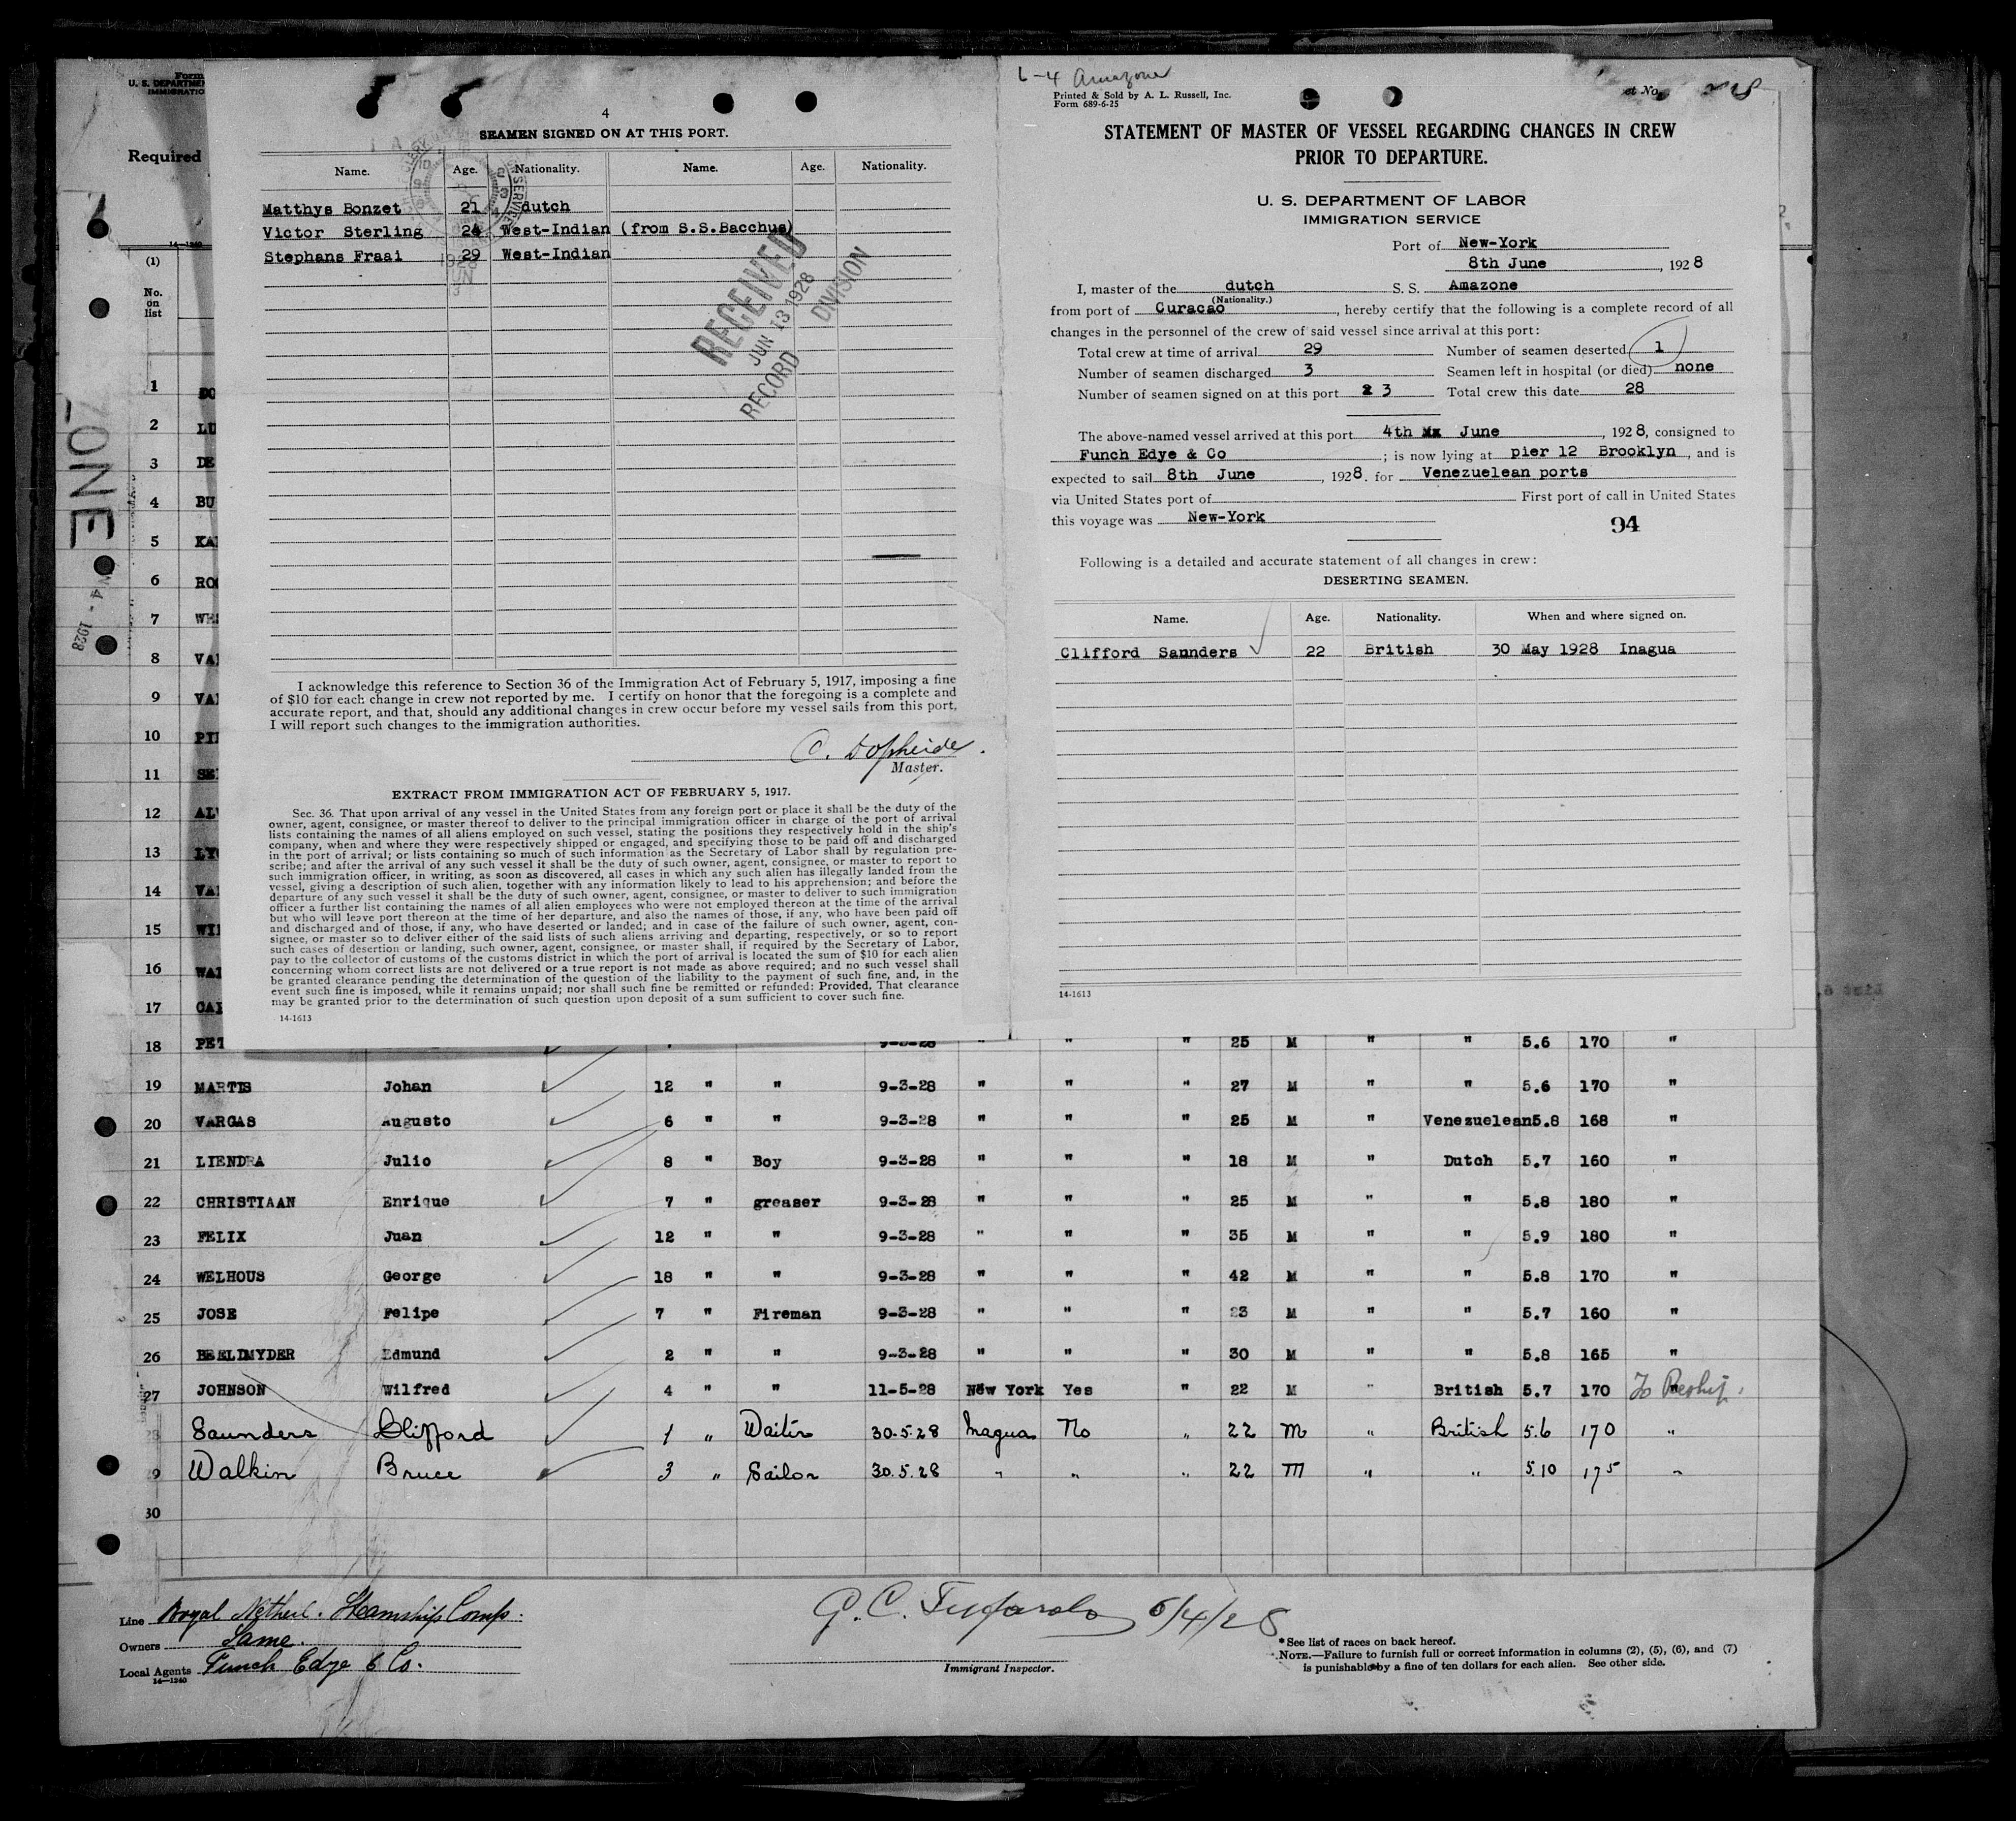 4
SEAMEN SIGNED ON AT THIS PORT.
Name. Age. Nationality. Name. Age. Nationality.
Matthys Bonzet 21 dutch
Victor Sterling 24 West-Indian (from S.S.Bacchus)
Stephans Fraai 29 West-Indian
RECEIVED
JUN 13 1928
RECORD DIVISION
I acknowledge this reference to Section 36 of the Immigration Act of February 5, 1917, imposing a fine
of $10 for each change in crew not reported by me. I certify on honor that the foregoing is a complete and
accurate report, and that, should any additional changes in crew occur before my vessel sails from this port,
I will report such changes to the immigration authorities.
C. Dopheide.
Master.
EXTRACT FROM IMMIGRATION ACT OF FEBRUARY 5, 1917.
Sec. 36. That upon arrival of any vessel in the United States from any foreign port or place it shall be the duty of the
owner, agent, consignee, or master thereof to deliver to the principal immigration officer in charge of the port of arrival
lists containing the names of all aliens employed on such vessel, stating the positions they respectively hold in the ship's
company, when and where they were respectively shipped or engaged, and specifying those to be paid off and discharged
in the port of arrival; or lists containing so much of such information as the Secretary of Labor shall by regulation pre-
scribe; and after the arrival of any such vessel it shall be the duty of such owner, agent, consignee, or master to report to
such immigration officer, in writing, as soon as discovered, all cases in which any such alien has illegally landed from the
vessel, giving a description of such alien, together with any information likely to lead to his apprehension; and before the
departure of any such vessel it shall be the duty of such owner, agent, consignee, or master to deliver to such immigration
officer a further list containing the names of all alien employees who were not employed thereon at the time of the arrival
but who will leave port thereon at the time of her departure, and also the names of those, if any, who have been paid off
and discharged and of those, if any, who have deserted or landed; and in case of the failure of such owner, agent, con-
signee, or master so to deliver either of the said lists of such aliens arriving and departing, respectively, or so to report
such cases of desertion or landing, such owner, agent, consignee, or master shall, if required by the Secretary of Labor,
pay to the collector of customs of the customs district in which the port of arrival is located the sum of $10 for each alien
concerning whom correct lists are not delivered or a true report is not made as above required; and no such vessel shall
be granted clearance pending the determination of the question of the liability to the payment of such fine, and, in the
event such fine is imposed, while it remains unpaid; nor shall such fine be remitted or refunded: Provided, That clearance
may be granted prior to the determination of such question upon deposit of a sum sufficient to cover such fine.
14-1613
L-4 Amazone
Printed & Sold by A. L. Russell, Inc.
Form 689-6-25
et No.
STATEMENT OF MASTER OF VESSEL REGARDING CHANGES IN CREW
PRIOR TO DEPARTURE.
U. S. DEPARTMENT OF LABOR
IMMIGRATION SERVICE
Port of New-York
8th June, 1928
I, master of the dutch S. S. Amazone
(Nationality.)
from port of Curacao, hereby certify that the following is a complete record of all
changes in the personnel of the crew of said vessel since arrival at this port:
Total crew at time of arrival 29 Number of seamen deserted 1
Number of seamen discharged 3 Seamen left in hospital (or died) none
Number of seamen signed on at this port 3 Total crew this date 28
The above-named vessel arrived at this port 4th June, 1928, consigned to
Funch Edye & Co; is now lying at pier 12 Brooklyn, and is
expected to sail 8th June, 1928. for Venezuelean ports
via United States port of First port of call in United States
this voyage was New-York
94
Following is a detailed and accurate statement of all changes in crew:
DESERTING SEAMEN.
Name. Age. Nationality. When and where signed on.
Clifford Sannders 22 British 30 May 1928 Inagua
14-1613
Form
U. S. DEPARTMEN
IMMIGRATIO
Required
14-1240
(1)
No.
on
list
ZONE
1928
1 DO
2 LU
3 DE
4 BU
5 KA
6 ROO
7 WE
8 VAN
9 VAN
10 PI
11 SE
12 AL
13 LY
14 VA
15 WI
16 WA
17 CA
18 PET 9-3-28 " " " 25 M " " 5.6 170 "
19 MARTIS Johan 12 " " 9-3-28 " " " 27 M " " 5.6 170 "
20 VARGAS Augusto 6 " " 9-3-28 " " " 25 M " Venezuelean 5.8 168 "
21 LIENDRA Julio 8 " Boy 9-3-28 " " " 18 M " Dutch 5.7 160 "
22 CHRISTIAAN Enrique 7 " greaser 9-3-28 " " " 25 M " " 5.8 180 "
23 FELIX Juan 12 " " 9-3-28 " " " 35 M " " 5.9 180 "
24 WELHOUS George 18 " " 9-3-28 " " " 42 M " " 5.8 170 "
25 JOSE Felipe 7 " Fireman 9-3-28 " " " 23 M " " 5.7 160 "
26 BEELDNYDER Edmund 2 " " 9-3-28 " " " 30 M " " 5.8 165 "
27 JOHNSON Wilfred 4 " " 11-5-28 New York Yes " 22 M " British 5.7 170 To Reship.
28 Saunders Clifford 1 " Waiter 30.5.28 Inagua No " 22 M " British 5.6 170 "
29 Walkin Bruce 3 " Sailor 30.5.28 " " " 22 M " " 5.10 175 "
30
Line Royal Netherl. Steamship Comp.
Owners Same.
Local Agents Funch Edye & Co.
14-1240
6/4/28
Immigrant Inspector.
* See list of races on back hereof.
NOTE.—Failure to furnish full or correct information in columns (2), (5), (6), and (7)
is punishable by a fine of ten dollars for each alien. See other side.